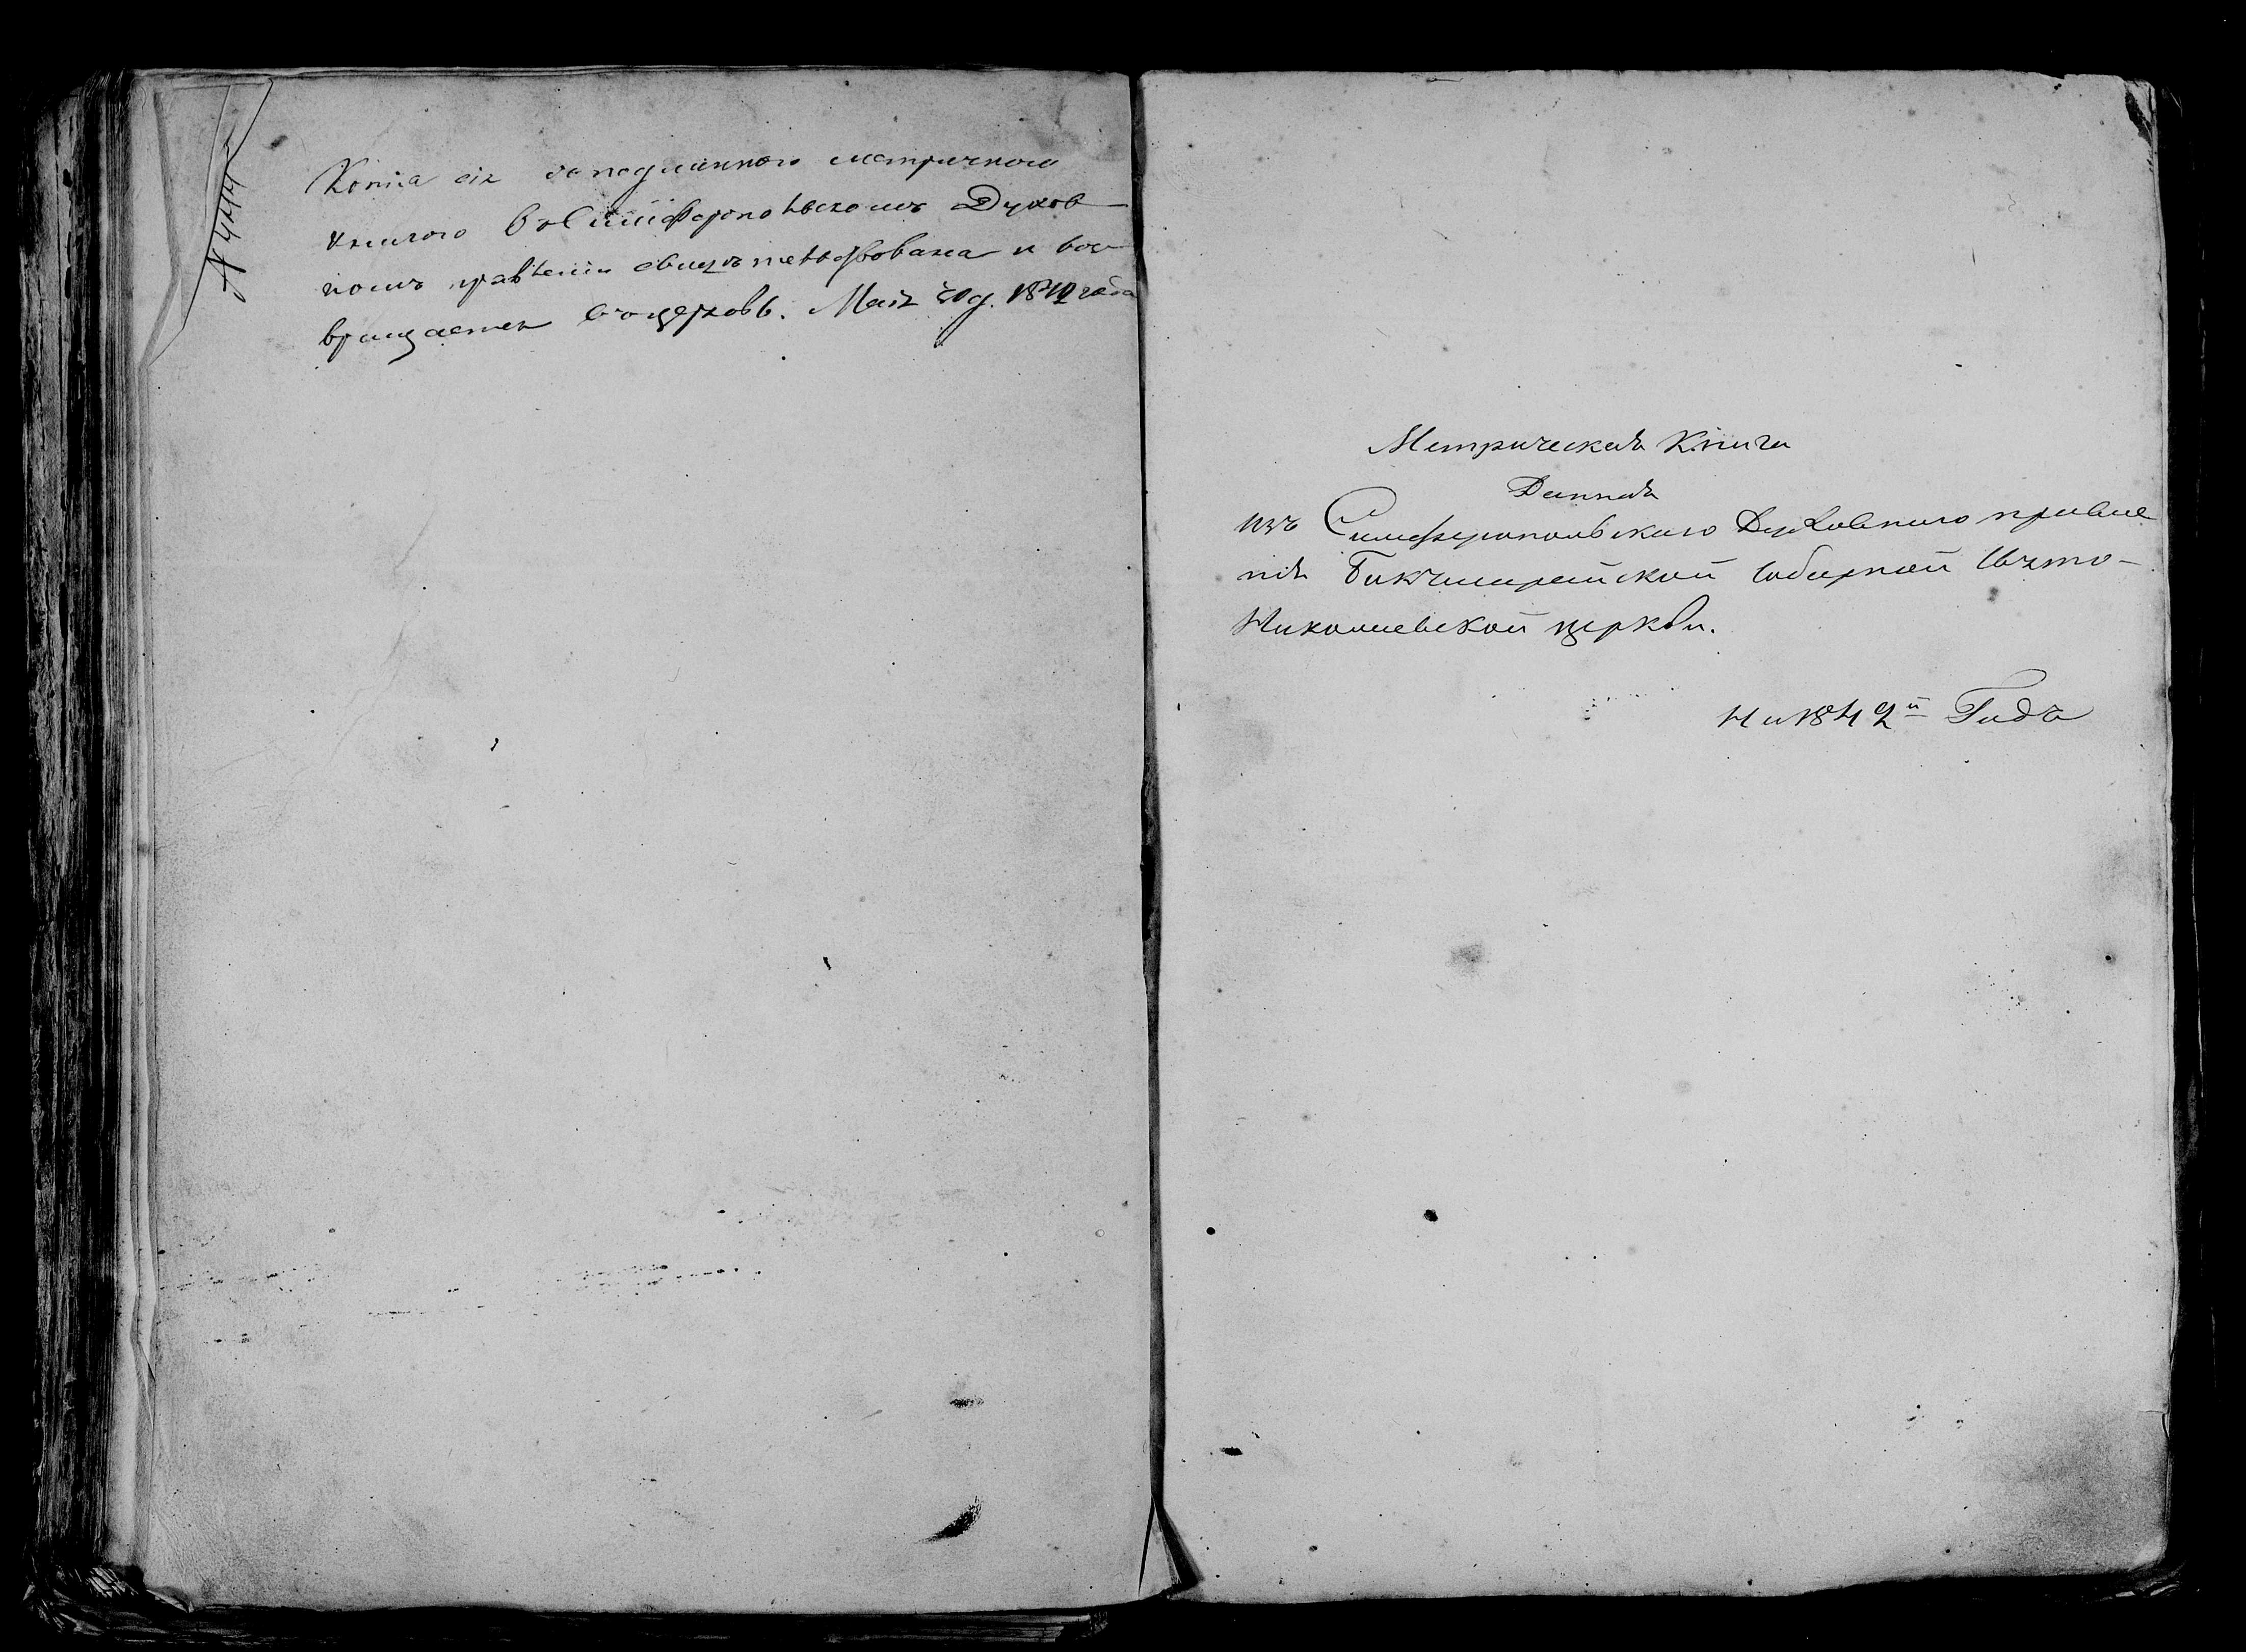 № 444
Копія сія со подлинною метричною
книгою въ Симферопольскомъ Духов-
номъ правленіи свидѣтельствована и воз-
вращается въ церковь. Маія 20 д. 18 года
Метрическая Книга
Данная
изъ Симферопольского Духовного правле
нія Бакчисарайской соборной Свято-
Николаевской церкви.
На 1842й Годъ